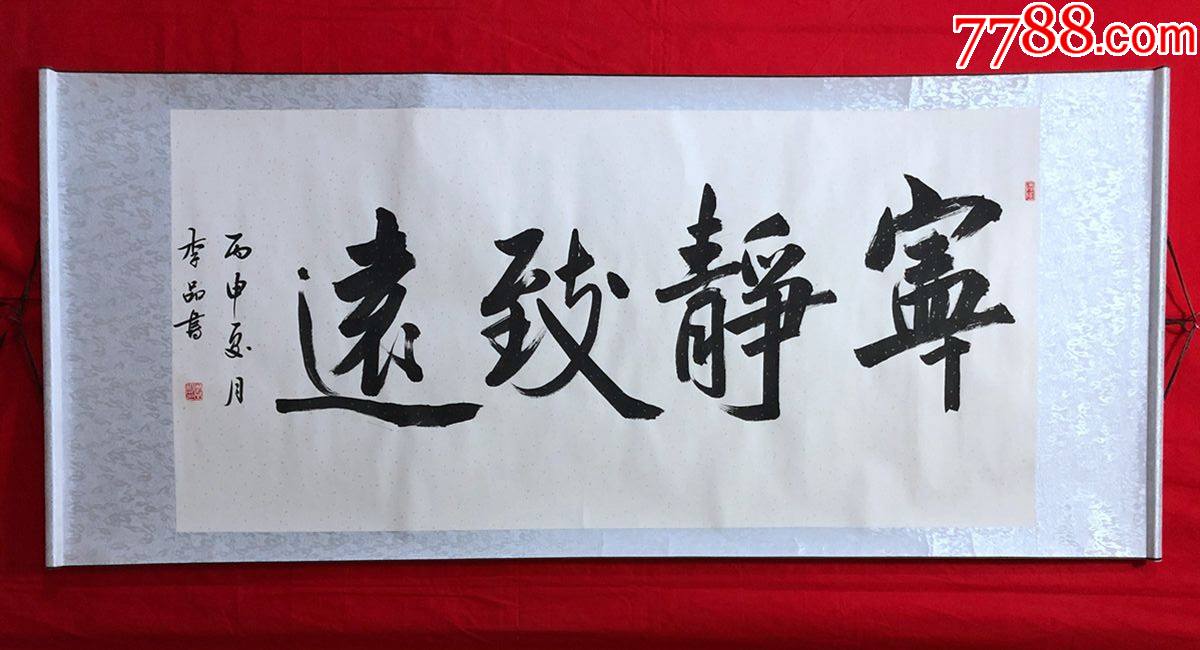 寧靜致遠
丙申夏月
李品書
7788.com